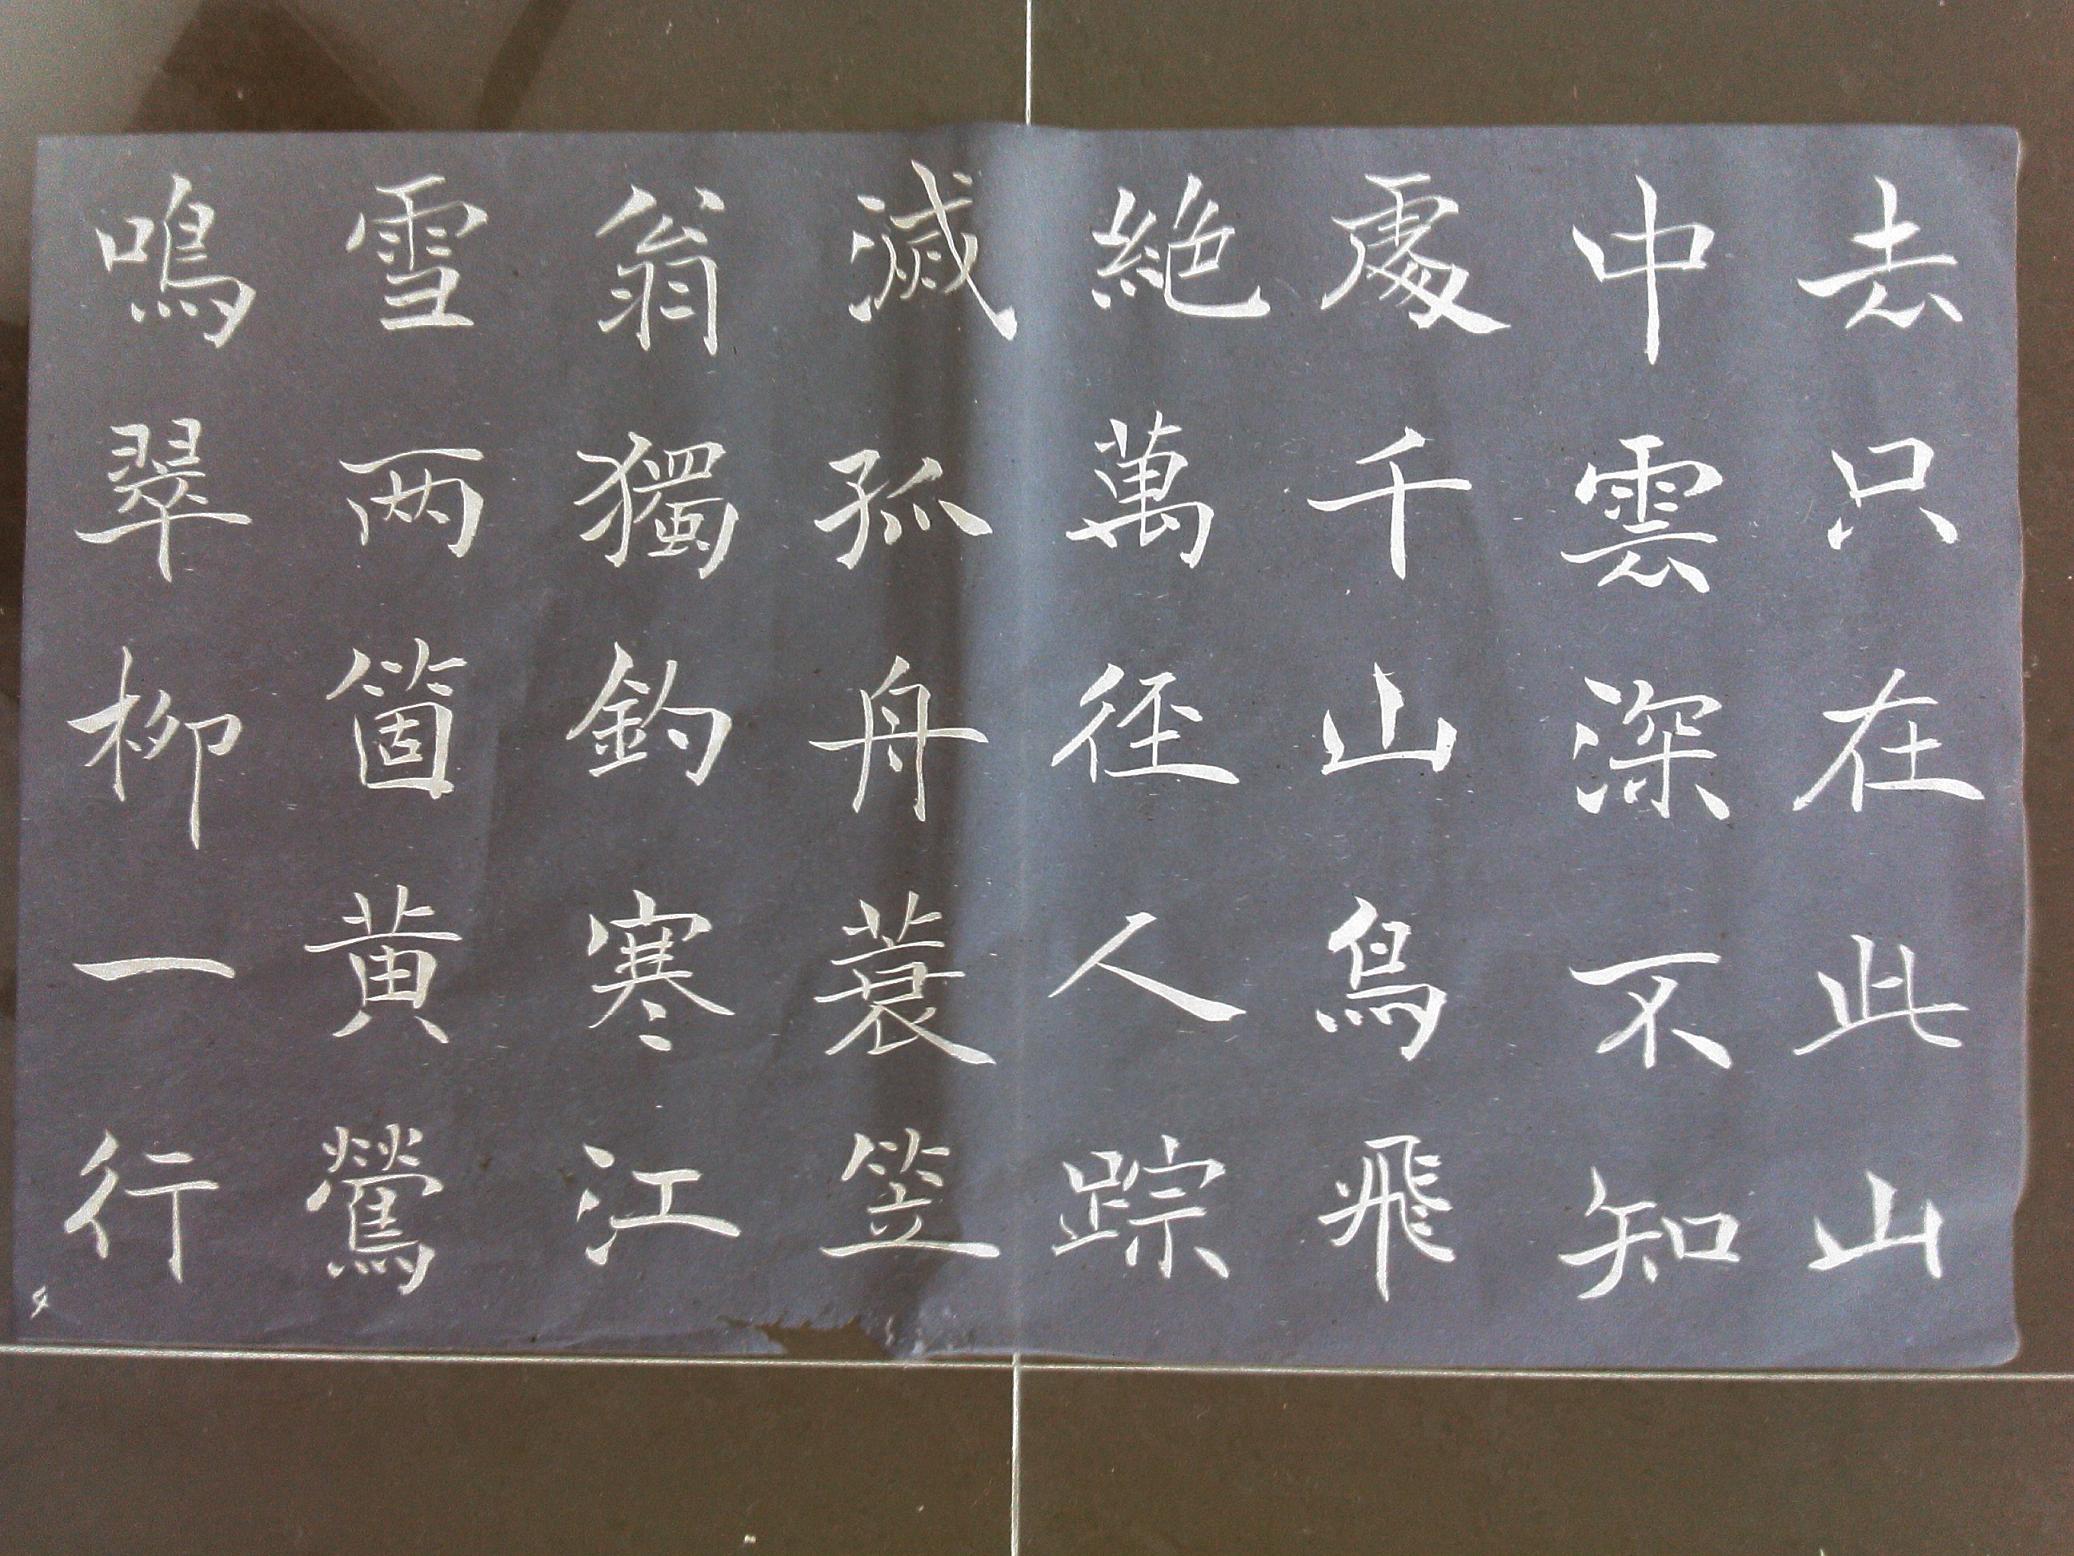 去只在此山
中雲深不知
處千山鳥飛
絶萬徑人踪
滅孤舟蓑笠
翁獨釣寒江
雪两箇黄鶯
鳴翠柳一行